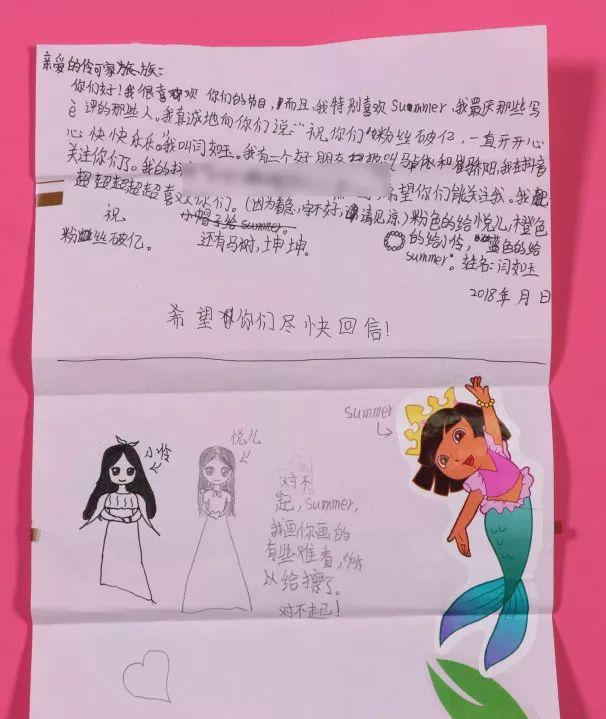 亲爱的伶可家族:
你们好!我很喜欢 你们的节目,而且,我特别喜欢Summer,我最厌那些写
è评的那些人。我真诚地向你们说:"祝你们粉丝破亿,一直开开心
心快快乐乐。"我叫闫如玉。我有二个好朋友 叫马 依和 阳,我在抖音
关注你们了。我的抖 希望你们能关注我。我
超超超超超喜欢你们。(因为着急,字不好,请见谅)粉色的给悦儿,橙色
祝 小帽子给summer。 的给小伶,蓝色的给
粉丝破亿。 还有马树,坤坤。 summer。姓名:闫如玉
2018年 月 日
希望你们尽快回信!
summer
小伶
悦儿
对不
起,summer,
我画你画的
有些难看,所
以给擦了。
对不起!